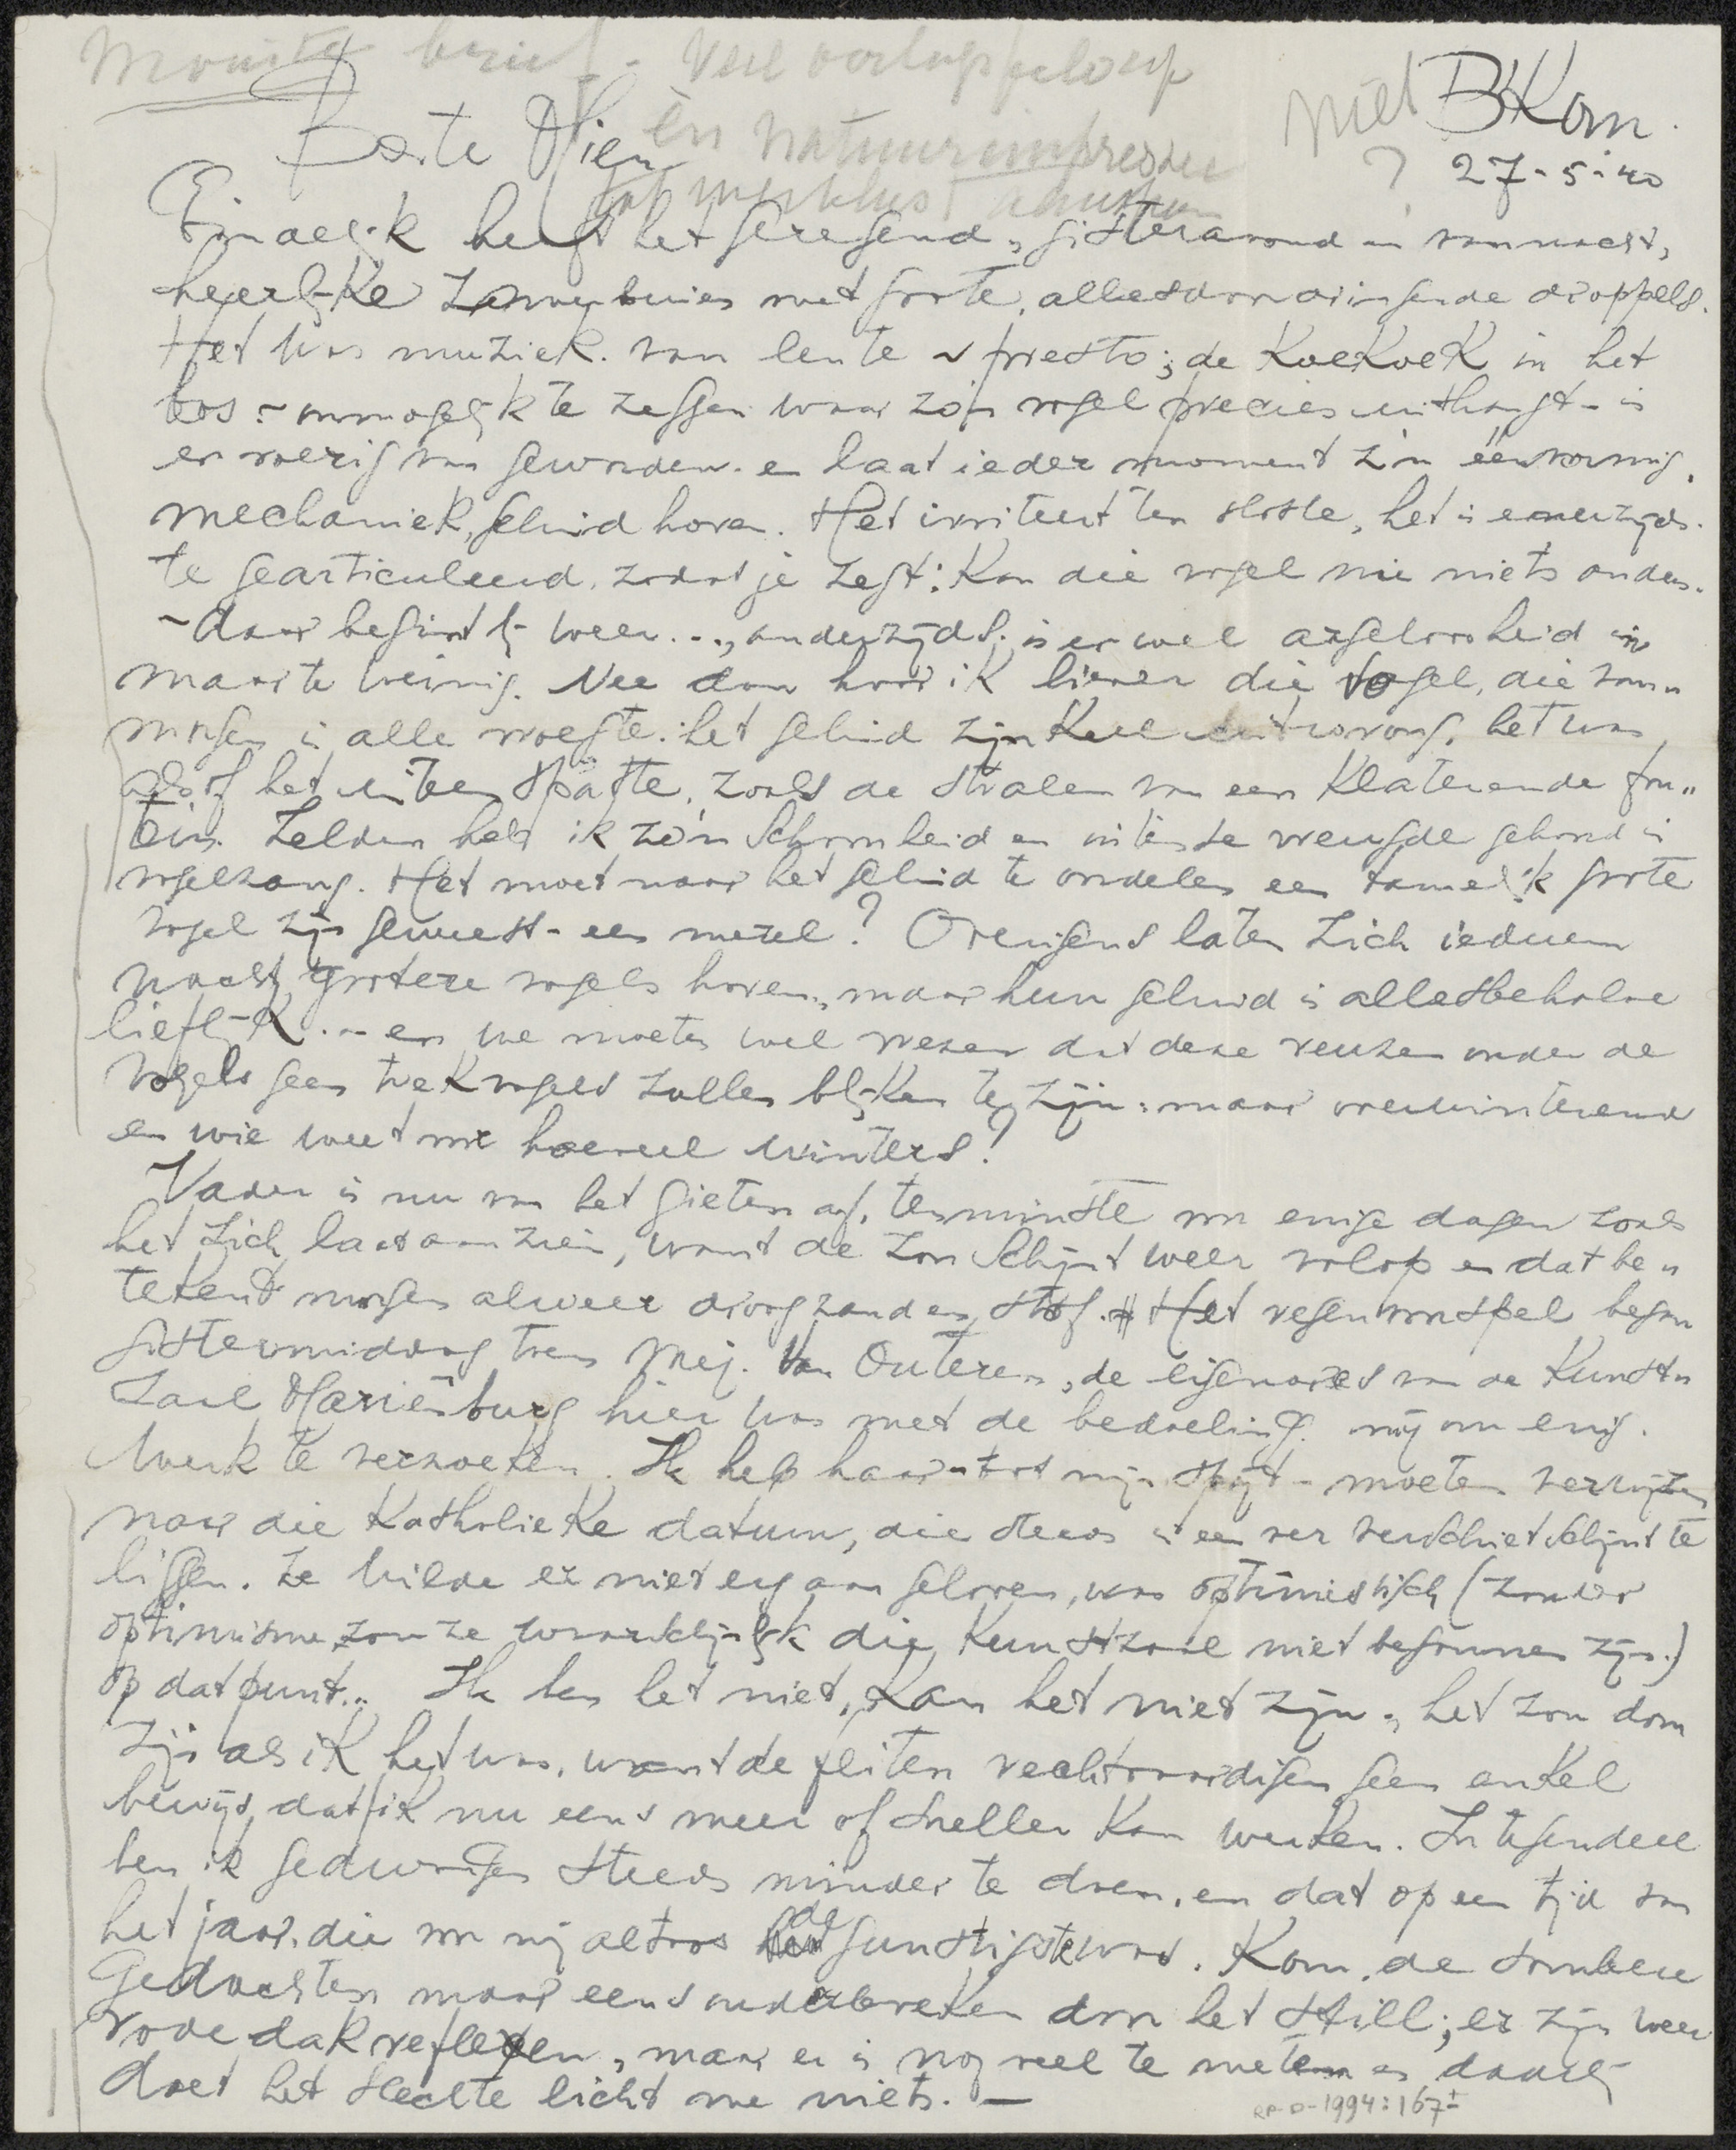 Mooiste brief - veel oorlogsgeloof
en natuurimpressie
tot werklust
niet BKom.
?
27-5-40
Beste Wien
Eindelijk heeft het geregend, gisteravond en vannacht,
heerlijke zomerbuien met grote, allesdoordringende droppels.
Het was muziek van lente - presto; de KoeKoeK in het
bos - onmogelijk te zeggen waar zo'n vogel precies uithangt - is
er roerig van geworden en laat ieder moment z'n éénvormig,
mechaniek, geluid horen. Het irriteert ten slotte, het is enerzijds
te gearticuleerd, zodat je zegt: Kan die vogel nu niets anders.
- daar begint hij weer..., anderzijds is er wel argeloosheid in
maar te weinig. Nee dan hoor ik liever die vogel, die van-
morgen in alle vroegte het geluid zijn Keel uitwrong, het was
alsof het uiteen spatte, zoals de stralen van een Klaterende fon-
tein. Zelden heb ik zo'n schoonheid en intense vreugde gehoord in
vogelzang. Het moet naar het geluid te oordelen een tamelijk grote
vogel zijn geweest - een merel? Overigens laten zich iedere
nacht grotere vogels horen, maar hun geluid is allesbehalve
lieflijk... en we moeten wel vrezen dat deze reuzen onder de
vogels geen trekvogels zullen blijken te zijn: maar overwinterend
en wie weet voor hoeveel winters!
Vader is nu van het gieten af, tenminste voor enige dagen zoals
het zich laat aanzien, want de zon schijnt weer volop en dat be-
tekent morgen alweer droog zand en stof. # Het regenvoorspel begon
gistermiddag toen Mej. van Outeren, de eigenares van de Kunst-
zaal Mariënburg hier was met de bedoeling mij om enig
werk te verzoeken. Ik heb haar - tot mijn spijt - moeten verwijzen
naar die Katholieke datum, die steeds in een ver verschiet schijnt te
liggen. Ze wilde er niet erg aan geloven, was optimistisch (zonder
optimisme zou ze waarschijnlijk die Kunstzaal niet begonnen zijn.)
op dat punt... Ik ben het niet, Kan het niet zijn, het zou dom
zijn als ik het was, want de feiten rechtvaardigen geen enkel
bewijs, dat ik nu eens meer of sneller Kan werken. Integendeel
ben ik gedwongen steeds minder te doen, en dat op een tijd van
het jaar, die voor mij altoos de gunstigste was. Kom, de sombere
Gedachten maar eens onderbreken door het still; er zijn weer
rode dakreflexen, maar er is nog veel te meten en daarbij
doet het slechte licht me niets. -
RP-D-1994:167-